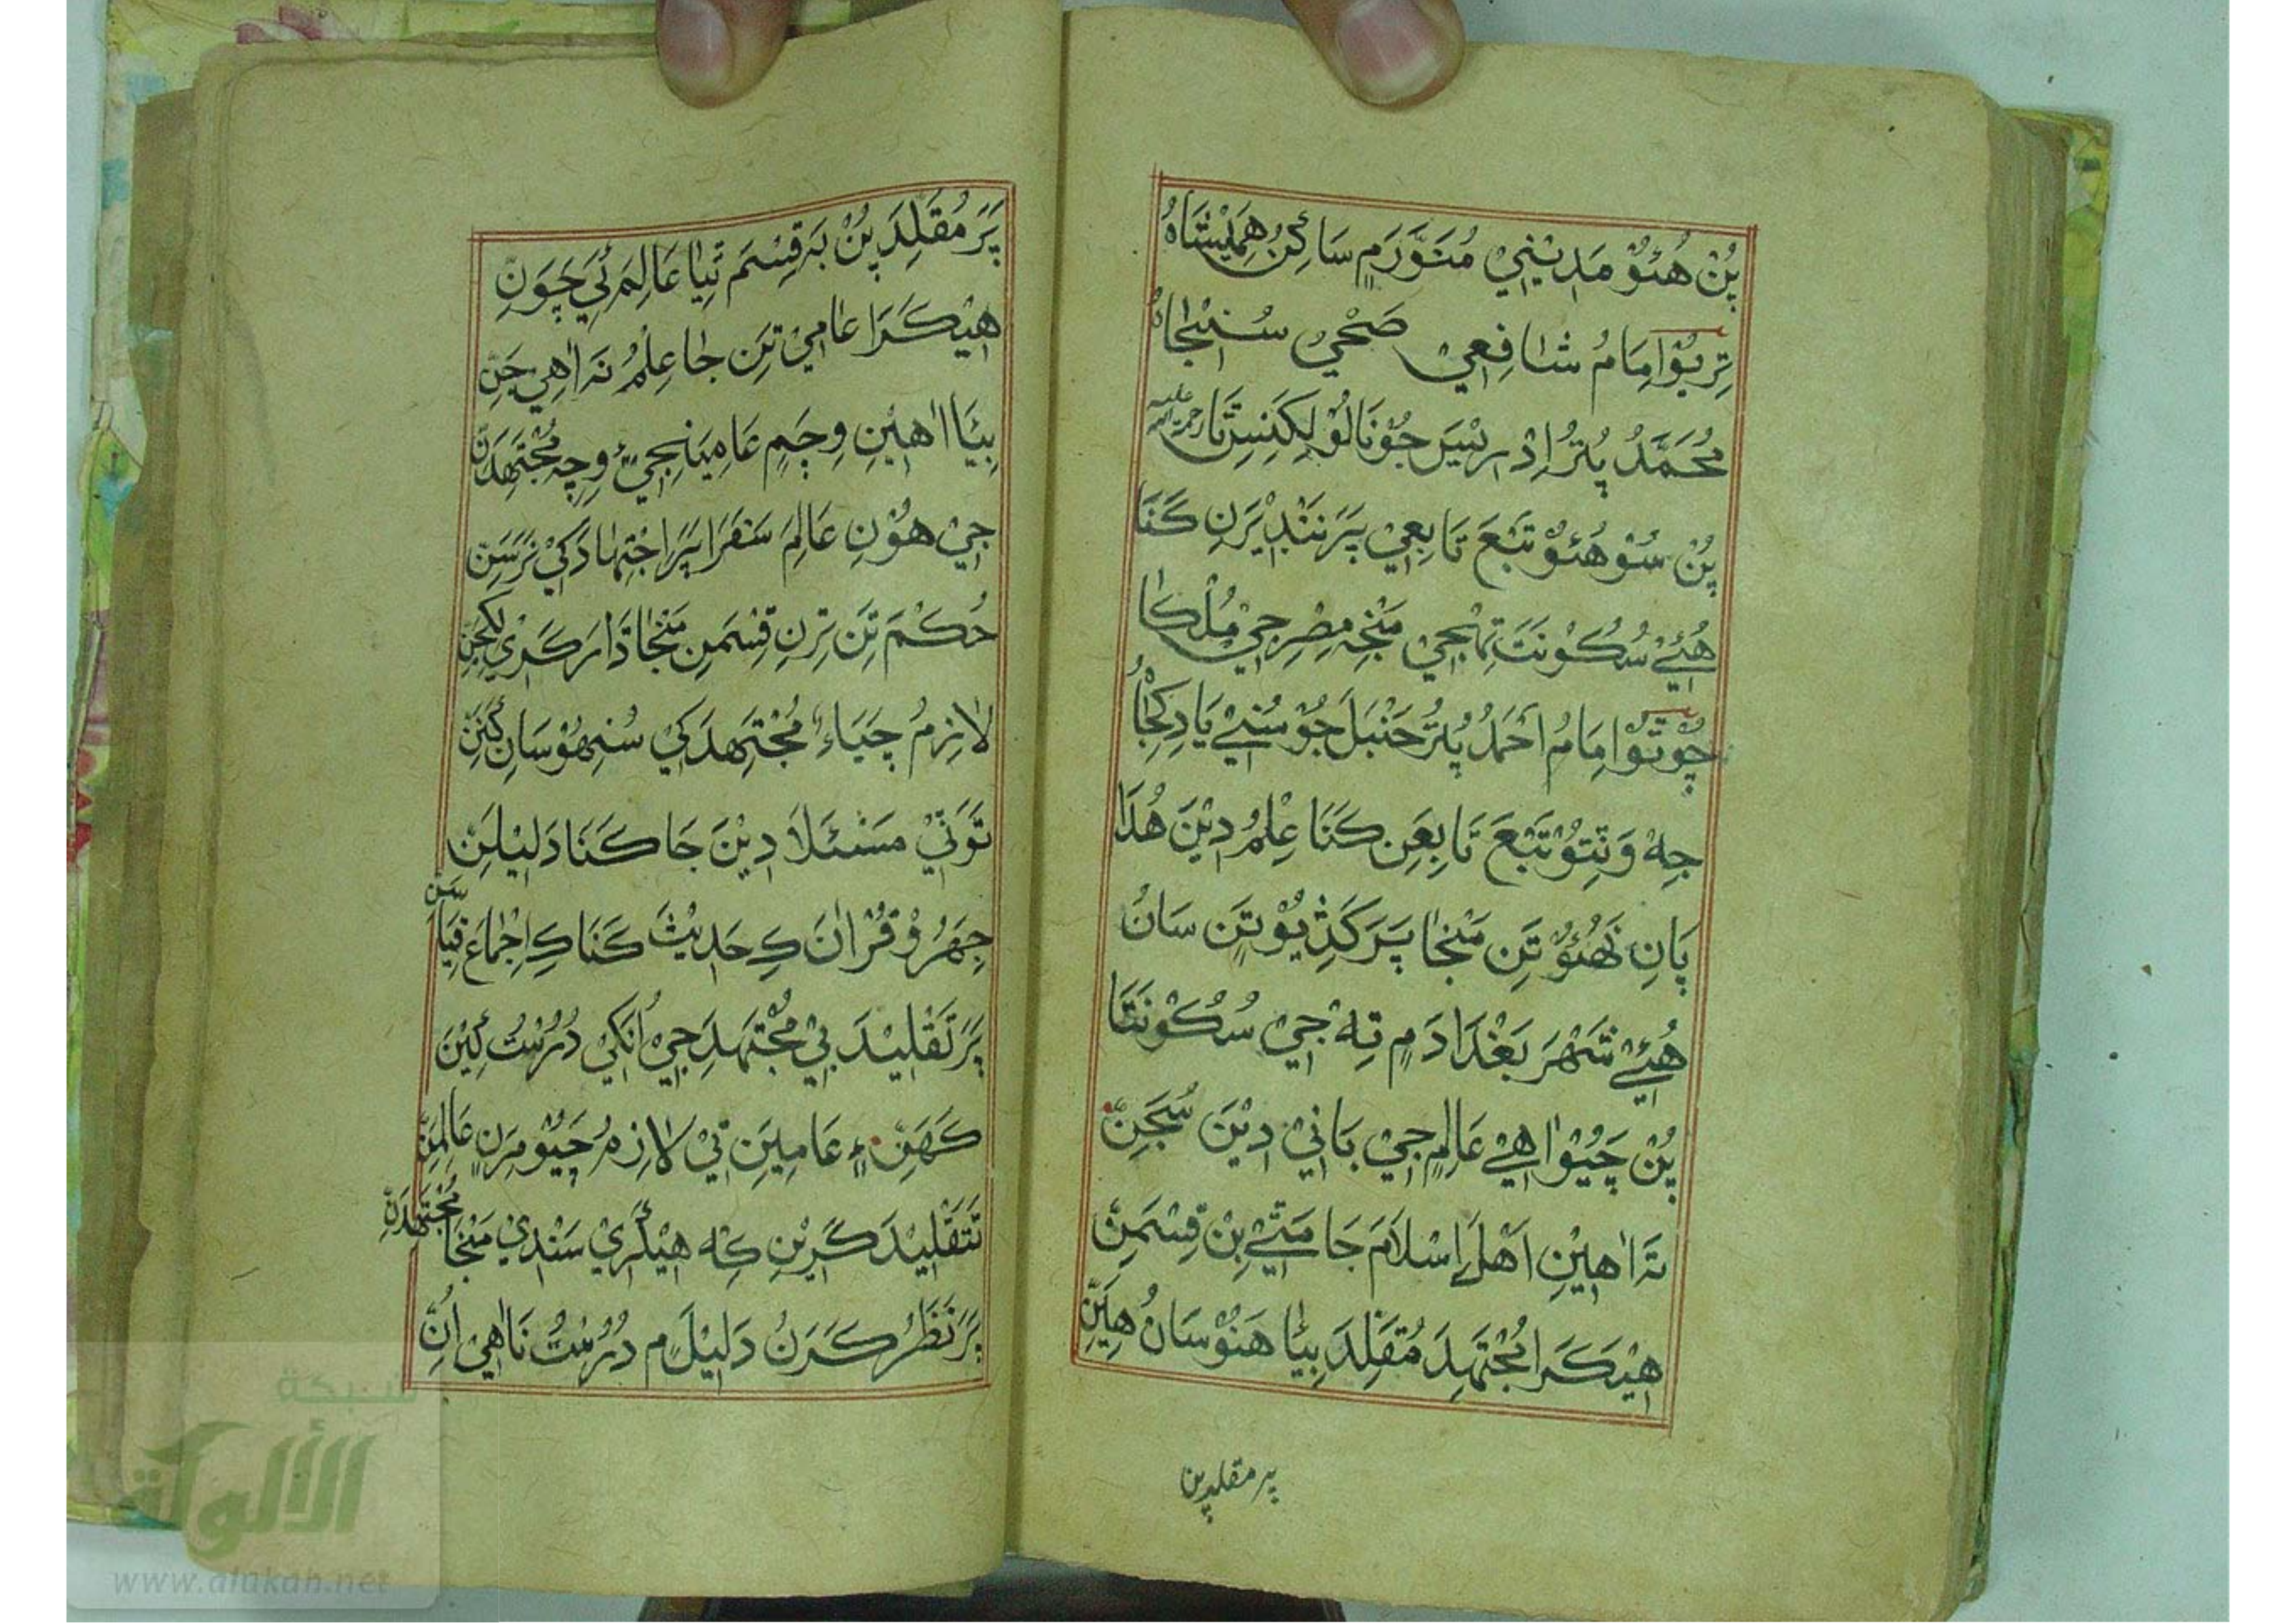 پُنْ هُئوْ مَدِيْنِيْ مُنَوَّرَمٍ سَاکِنُ هَمِيْشَاهُ
تِرِيُوْ اِمَامُ شَافِعِيْ صَحْيُ سُڃْجَاڻُ
مُحَمَّدُ پُٽُرُ اِدْرِيْسَ جُوْ نَالُوْ لِکَنِسِ تَا رحمة الله عليه
پُنْ سُوْ هُئوْ تَبْعَ تَابِعِيْ پَرَ نَنْدِيْرَنِ کَنَا
هُئِيْ سُکُوْنَتَ تِهْجِيْ مَنْجِهِ مِصْرِ جِيْ مُلْکَا
چُوْتُوْ اِمَامُ اَحْمَدُ پُٽُرُ حَنْبَلَ جُوْ سُڻِيْ يَادِ کِجَاُ
جِهْ وَٽِتُوْ تَبْعَ تَابِعِنِ کَنَا عِلْمُ دِيْنَ هُدَا
پَانِ نَهُئوْ تَنِ مَنْجَا پَرَ کَڎِيُوْ تِنِ سَانُ
هُئِيْ شَهْرَ بَغْدَادَ مٍ تِهْ جِيْ سُکُوْنَتَا
پُنْ چَيُوْ اٰهِيْ عَالِمٍ جِيْ بَانِيْ دِيْنَ سُجَنِ
تَه اٰهِيْنِ اَهْلِ اِسْلَامَ جَا مَٽِيْ بِنْ قِسْمَنِ
هِيْکَرَا مُجْتَهِدَ مُقَلِّدَ بِيَا هَنُوْ سَانُ هِيَنِ
پر مقلد پن
پَرَ مُقَلِّدَ پُنْ بَه قِسْمَ تِيَا عَالِمَ ئِيْ چَوَنِ
هِيْکَرَا عَامِيْ تَنِ جَا عِلْمُ نَه اٰهِيْ جَنِ
بِيَا اٰهِيْنِ وِچَمٍ عَامِيَنِ جِيْ ءٍ وِچِ مُجْتَهِدَنِ
جِيْ هُوْنِ عَالِمَ سَفَرَا پَرَ اِجْتِهَادَ کِيْ نَرَسَنِ
حُکْمَ تَنِ تِرِنِ قِسْمَنِ مَنْجَا ڌَارَ کَرِيْ لِکِجَنِ
لَازِمُ چَيَاءِ مُجْتَهِدَ کِيْ سُنِهُوْ سَانِ کَنَنِ
تَوَنِيْ مَسْئَلَا دِيْنَ جَا کَنَا دَلِيْلَنِ
جِهَرُوْ قُرْاٰنَ کِ حَدِيْثَ کَنَا کِ اِجْمَاعَ قِيَاسَنِ
پَرَ تَقْلِيْدَ بِيْ مُجْتَهِدَ جِيْ اُنَکِيْ دُرُسْتُ ئِيْنَ
کَهَنِ ءٍ عَامِيَنِ تِيْ لَازِمُ چَيُوْ مِرَنِ عَالِمَنِ
تَتَقْلِيْدَ کَرِيْنِ کِه هِيْکَرِيْ سَنْدِيْ مَنْجَا مُجْتَهِدَنِ
پَرَ نَظَرُ کَرَنُ دَلِيْلَ مٍ دُرُسْتُ نَاهِيْ اُنِ
شبكة
الألوكة
www.alukah.net